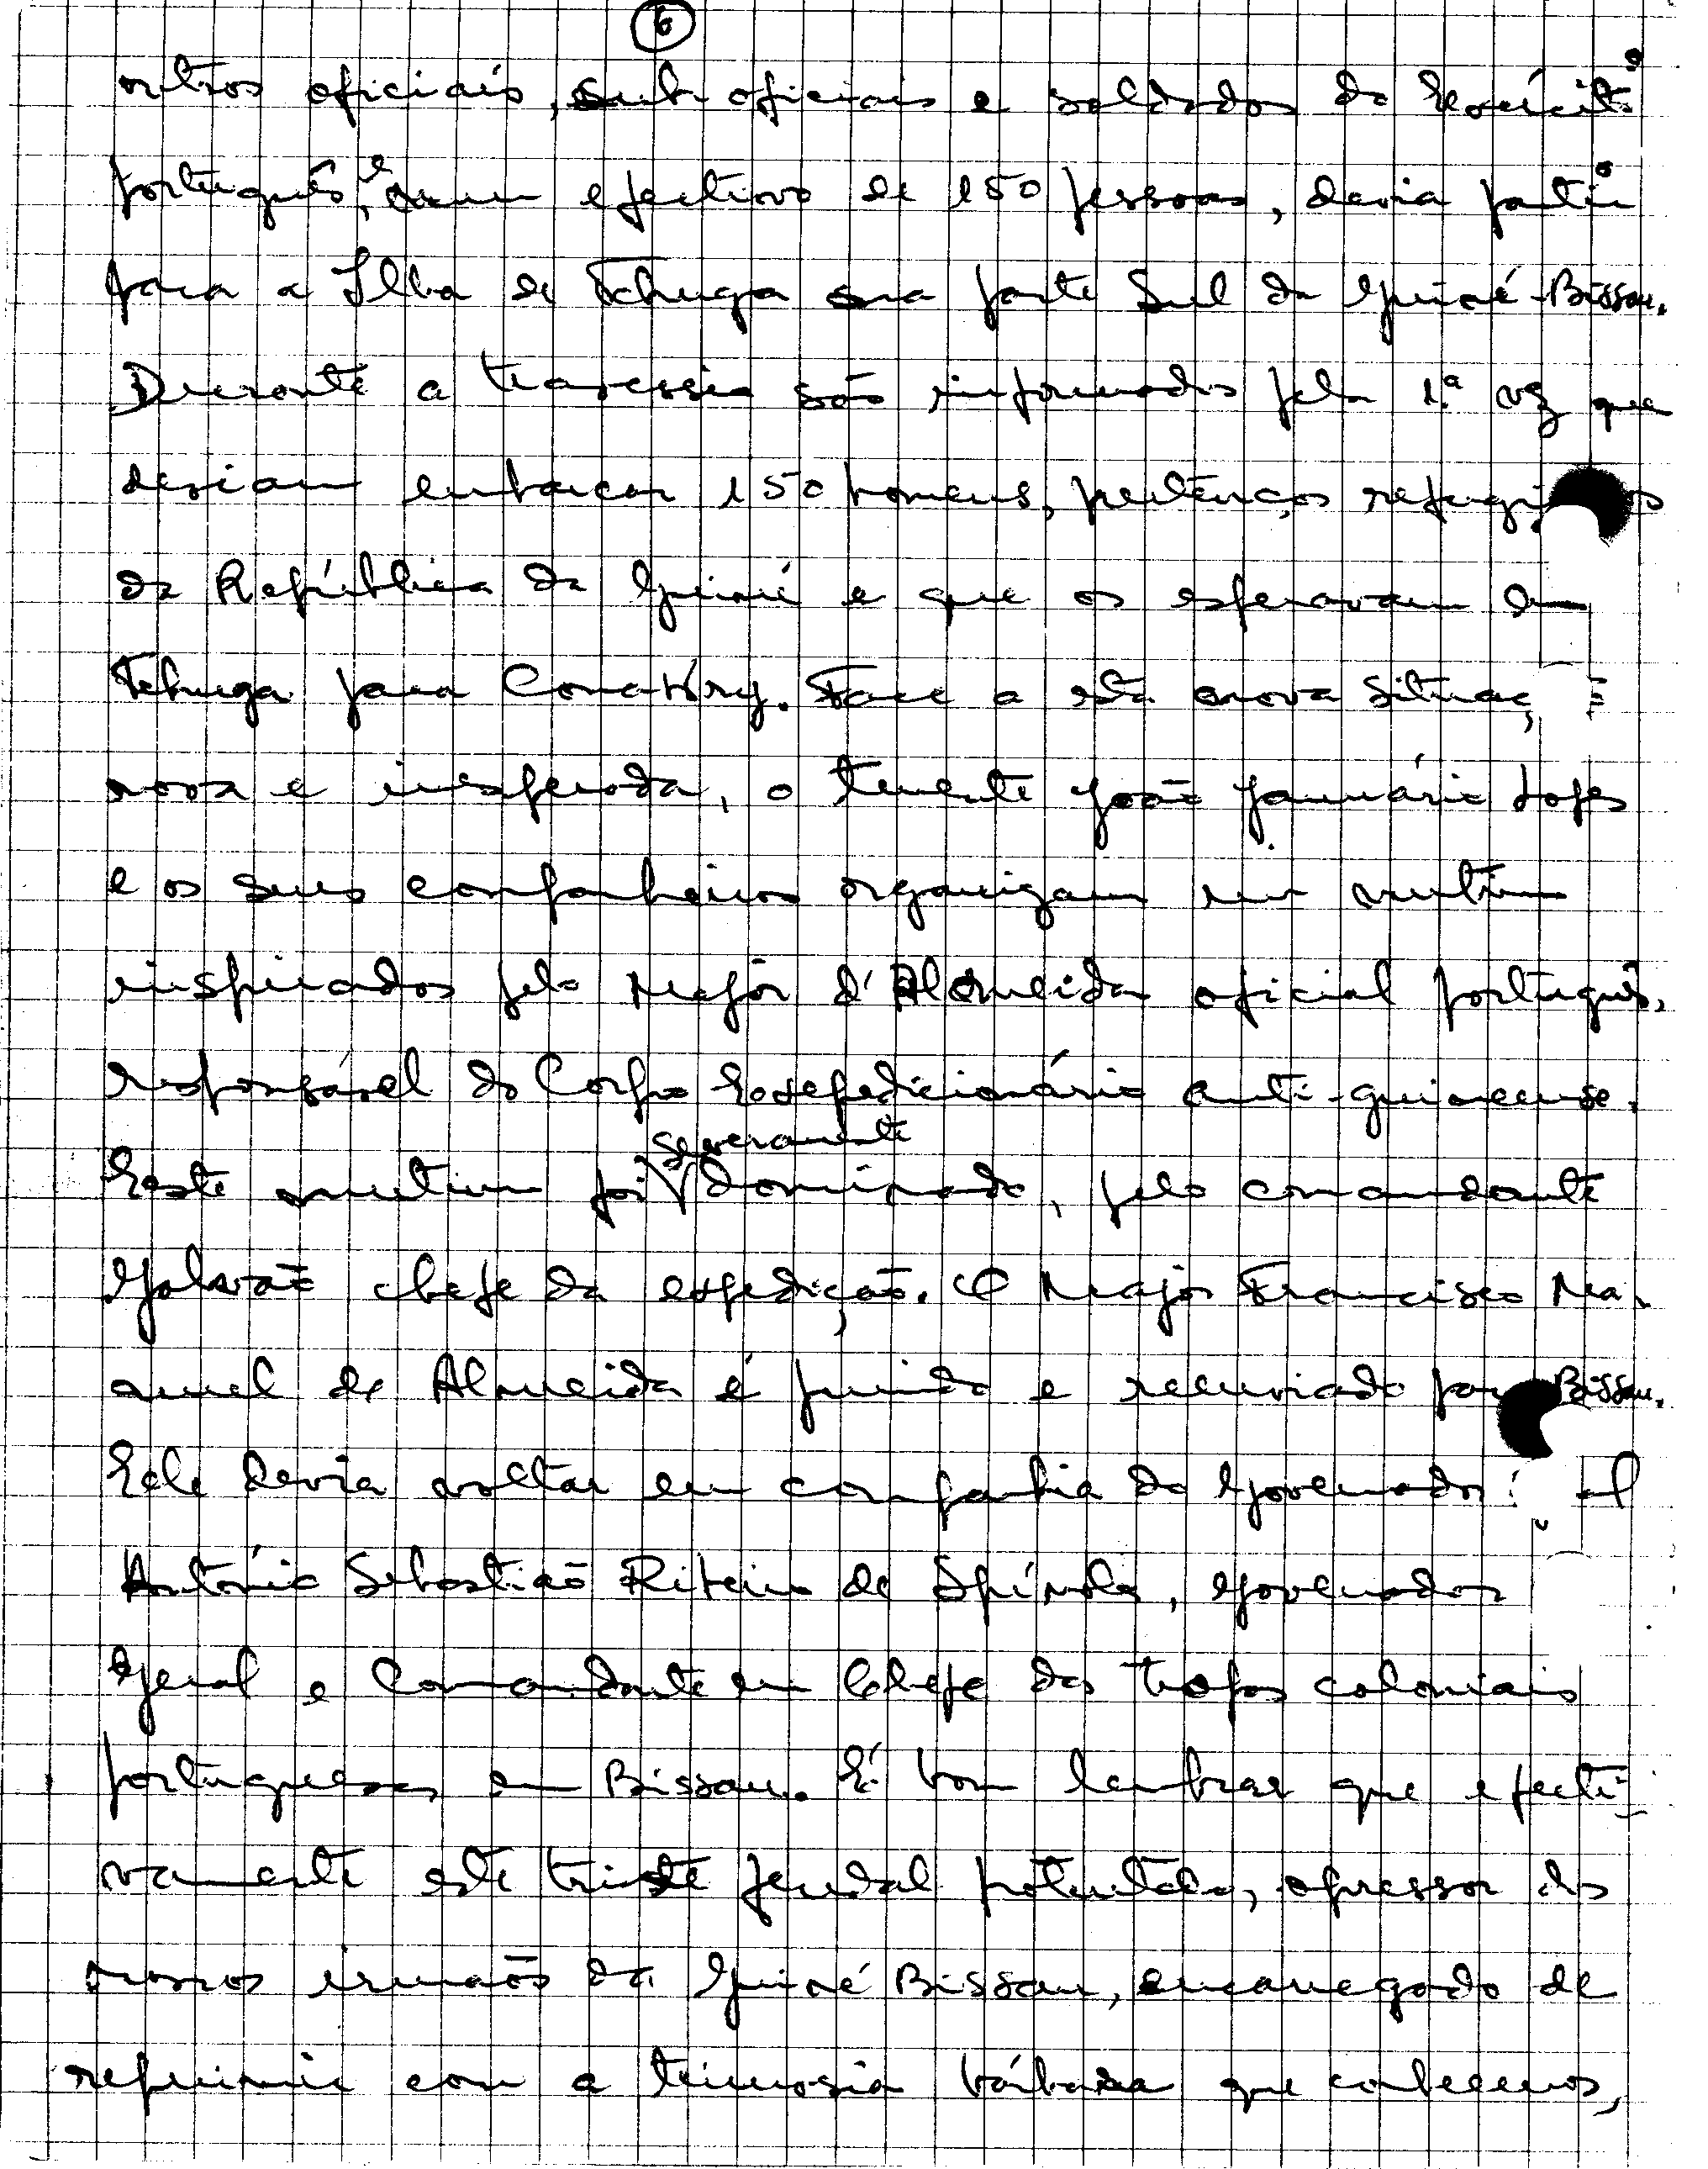 6
outros oficiais, sub-oficiais e soldados do Exército
português, e num efectivo de 150 pessoas, devia partir
para a Ilha de Tchuga na parte Sul da Guiné-Bissau.
Durante a travessia são informados pela 1.ª vez que
deviam embarcar 150 homens, pretensos refugi os
da República da Guiné e que os esperavam em
Tchuga para Conakry. Face a esta nova situaç
nova e inesperada, o tenente João Januário Lopes
e os seus companheiros organizam um mutim
inspirados pelo Major d'Almeida oficial português,
responsável do Corpo Expedicionário anti-guineense.
severamente
Este mutim foi dominado, pelo comandante
Galvão chefe da expedição. O Major Francisco Ma-
nuel de Almeida é punido e recenviado para Bissau.
Ele devia voltar em companhia do Governador al
António Sebastião Ribeiro de Spínola, governador
geral e Comandante em Chefe das tropas coloniais
portuguesas em Bissau. É bom lembrar que efecti-
vamente este triste feudal potentado, opressor dos
nossos irmãos da Guiné Bissau, encarregado de
reprimir com a teimosia bárbara que conhecemos,